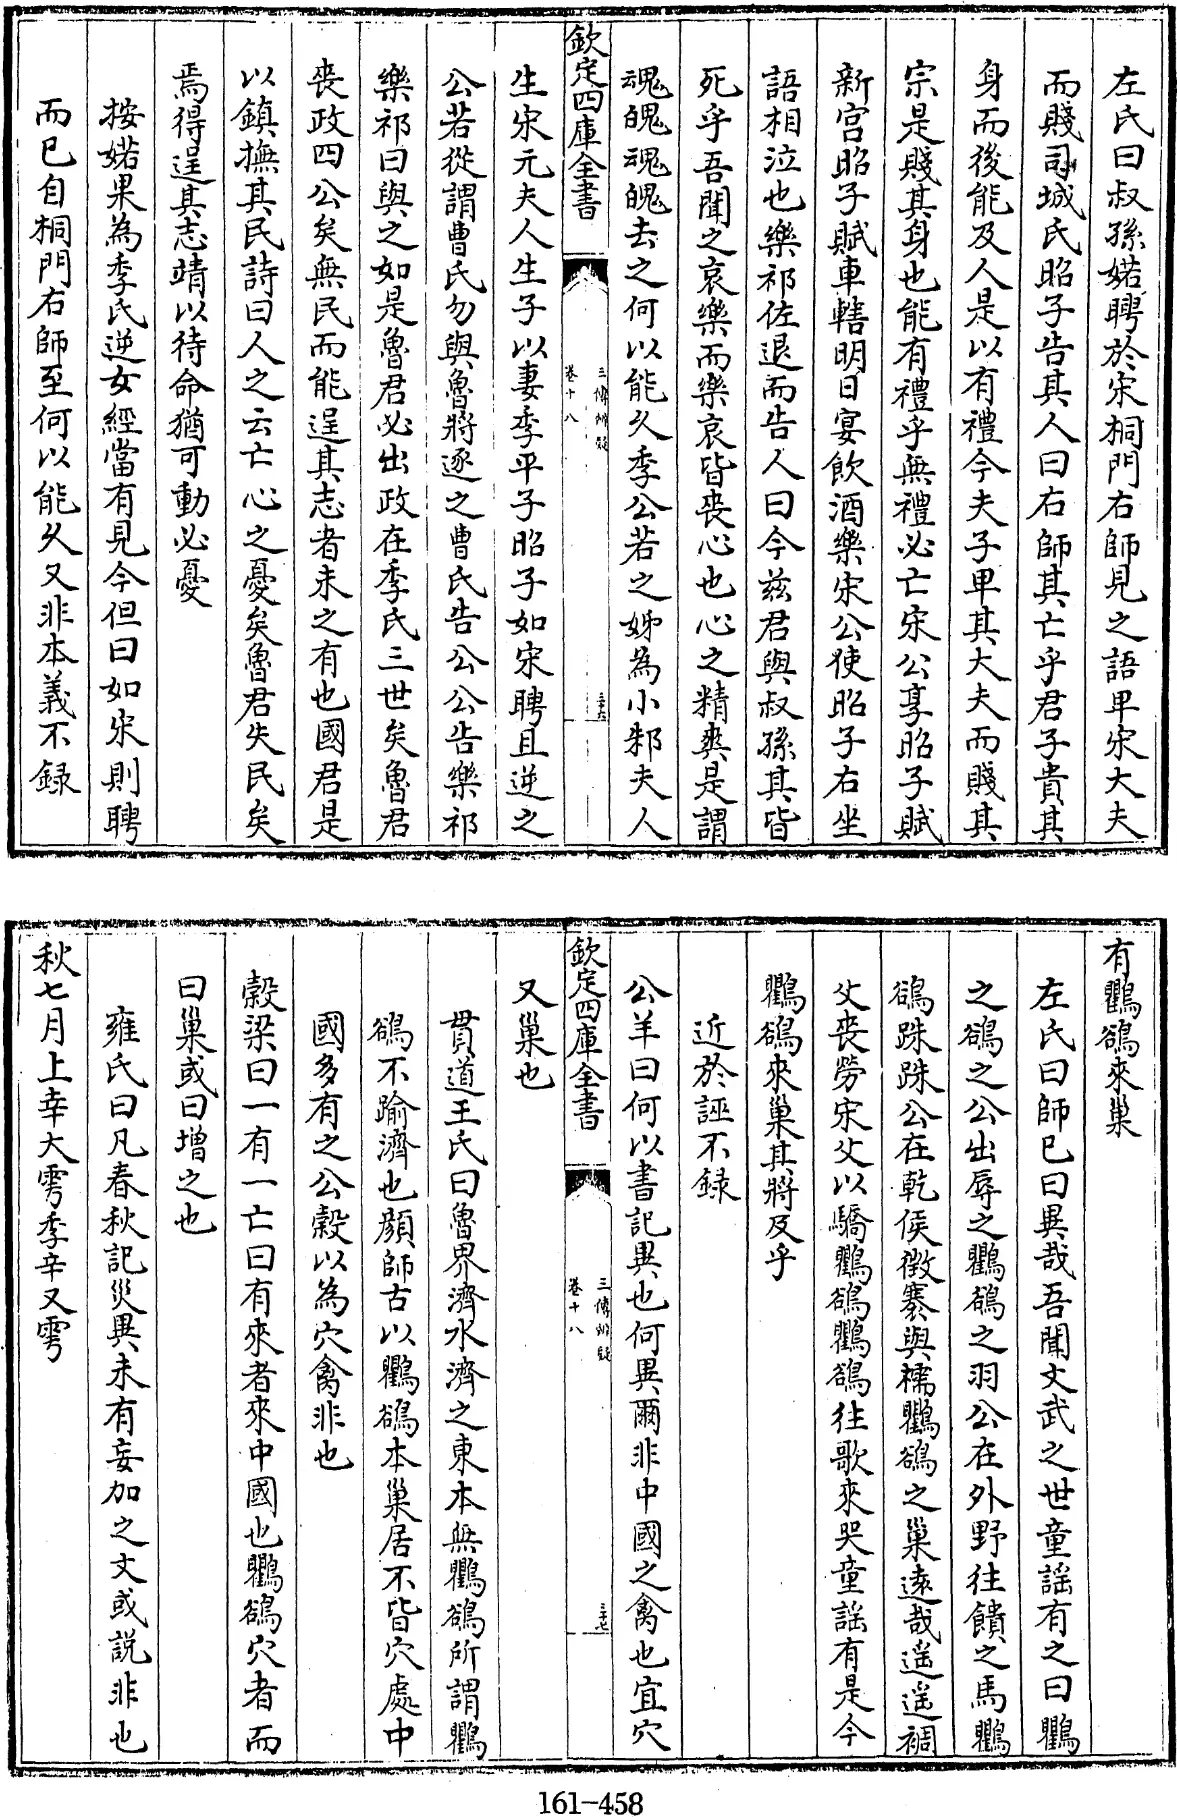 左氏曰叔孫婼聘於宋桐門右師見之語卑宋大夫
而賤司城氏昭子告其人曰右師其亡乎君子貴其
身而後能及人是以有禮今夫子卑其大夫而賤其
宗是賤其身也能有禮乎無禮必亡宋公享昭子賦
新宫昭子賦車轄明日宴飲酒樂宋公使昭子右坐
語相泣也樂祁佐退而告人曰今兹君與叔孫其皆
死乎吾聞之哀樂而樂哀皆喪心也心之精爽是謂
魂魄魂魄去之何以能久季公若之姊為小邾夫人
欽定四庫全書
三傳辨疑
卷十八
三十六
生宋元夫人生子以妻季平子昭子如宋聘且逆之
公若從謂曹氏勿與魯將逐之曹氏告公公告樂祁
樂祁曰與之如是魯君必出政在季氏三世矣魯君
喪政四公矣無民而能逞其志者未之有也國君是
以鎮撫其民詩曰人之云亡心之憂矣魯君失民矣
焉得逞其志靖以待命猶可動必憂
按婼果為季氏逆女經當有見今但曰如宋則聘
而已自桐門右師至何以能久又非本義不録
有鸜鵒來巢
左氏曰師己曰異哉吾聞文武之世童謡有之曰鸜
之鵒之公出辱之鸜鵒之羽公在外野往饋之馬鸜
鵒跦跦公在乾侯徵褰與襦鸜鵒之巢遠哉遥遥裯
父喪勞宋父以驕鸜鵒鸜鵒往歌來哭童謡有是今
鸜鵒來巢其將及乎
近於誣不録
公羊曰何以書記異也何異爾非中國之禽也宜穴
欽定四庫全書
三傳辨疑
卷十八
三十七
又巢也
貫道王氏曰魯界濟水濟之東本無鸜鵒所謂鸜
鵒不踰濟也顔師古以鸜鵒本巢居不皆穴處中
國多有之公榖以為穴禽非也
榖梁曰一有一亡曰有來者來中國也鸜鵒穴者而
曰巢或曰增之也
雍氏曰凡春秋記災異未有妄加之文或説非也
秋七月上辛大雩季辛又雩
161-458